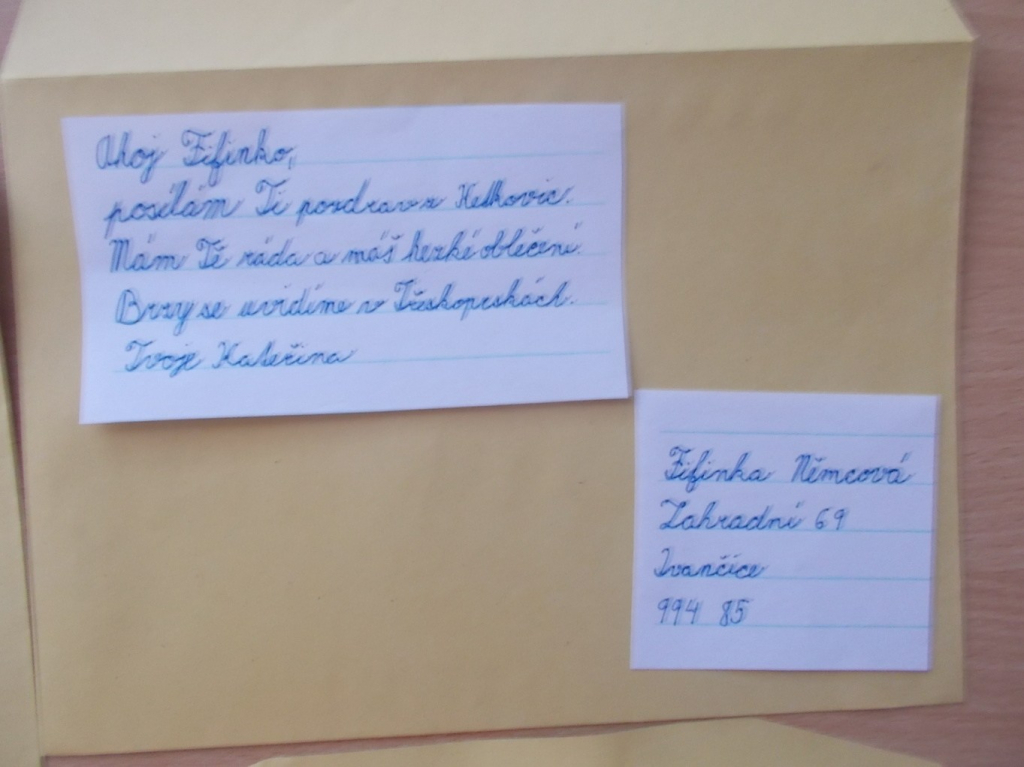 Ahoj Fifinko,
posílám Ti pozdrav z Ketkovic.
Mám Tě ráda a máš hezké oblečení.
Brzy se uvidíme v Třeskoprskách.
Tvoje Kateřina
Fifinka Němcová
Zahradní 69
Ivančice
994 85